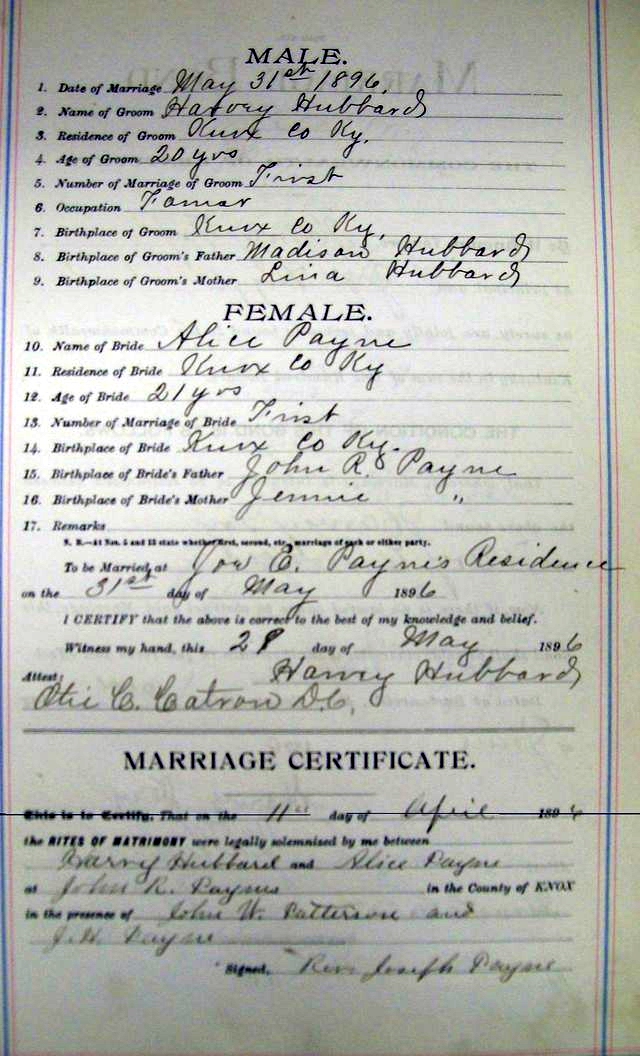 MALE.
1. Date of Marriage May 31st 1896.
2. Name of Groom Harvey Hubbard
3. Residence of Groom Knox Co Ky.
4. Age of Groom 20 yrs
5. Number of Marriage of Groom First
6. Occupation Famar
7. Birthplace of Groom Knox Co Ky.
8. Birthplace of Groom's Father Madison Hubbard
9. Birthplace of Groom's Mother Lina Hubbard
FEMALE.
10. Name of Bride Alice Payne
11. Residence of Bride Knox Co Ky
12. Age of Bride 21 yrs
13. Number of Marriage of Bride First
14. Birthplace of Bride Knox Co Ky.
15. Birthplace of Bride's Father John R. Payne
16. Birthplace of Bride's Mother Jennie "
17. Remarks
N. B.—At Nos. 5 and 13 state whether first, second, etc., marriage of each or either party.
To be Married at E. Payne's Residence
on the 31st day of May 1896
I CERTIFY that the above is correct to the best of my knowledge and belief.
Witness my hand, this day of May 1896
Harvey Hubbard
Attest:
Otie C. Catron D.C.
MARRIAGE CERTIFICATE.
This is to Certify, That on the day of April 189
the RITES OF MATRIMONY were legally solemnized by me between
Harvy Hubbard and Alice Payne
at John R. Paynes in the County of KNOX
in the presence of John W. Patterson and
J. H. Payne
Signed, Rev Joseph Payne